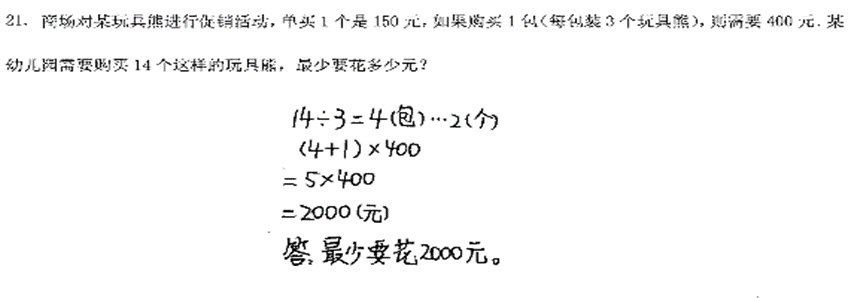 21. 商场对某玩具熊进行促销活动，单买 1 个是 150 元，如果购买 1 包（每包装 3 个玩具熊），则需要 400 元．某
幼儿园需要购买 14 个这样的玩具熊，最少要花多少元？
14÷3=4(包)…2(个)
(4+1)×400
=5×400
=2000(元)
答:最少要花2000元。